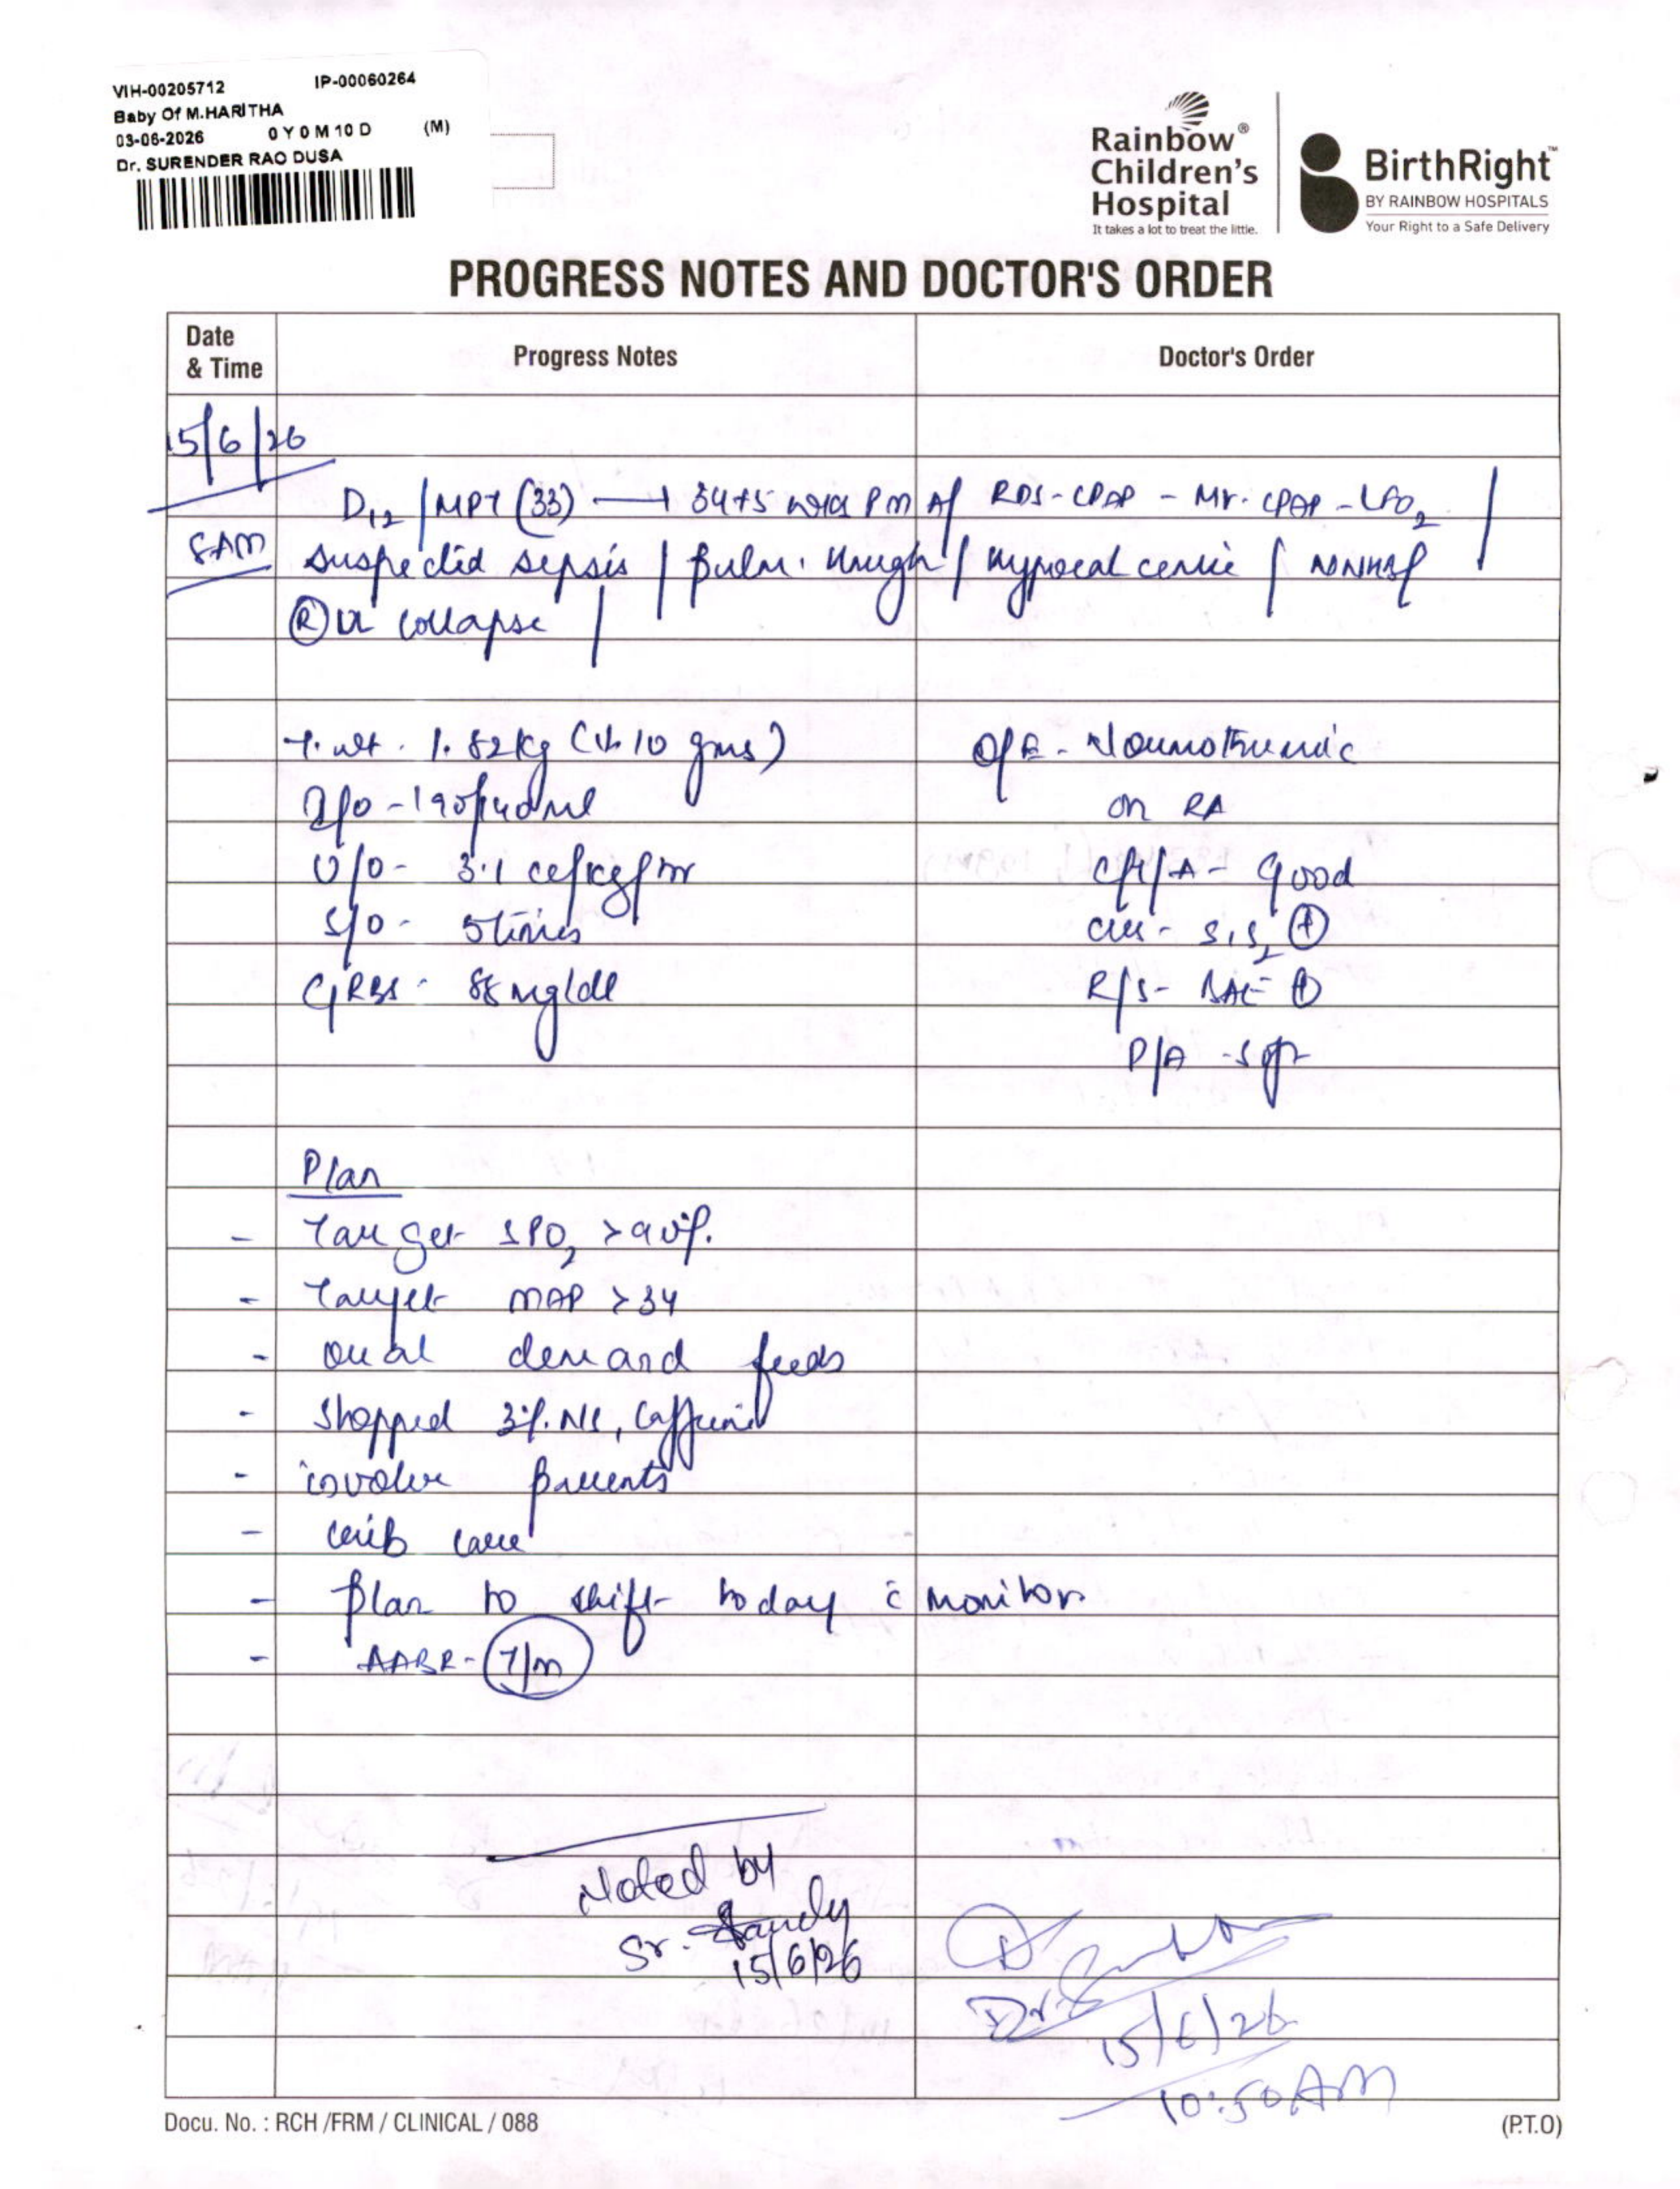 VIH-00205712 IP-00060264
Baby Of M.HARITHA
03-06-2026 0 Y 0 M 10 D (M)
Dr. SURENDER RAO DUSA
Rainbow®
Children's
Hospital
It takes a lot to treat the little.
BirthRight™
BY RAINBOW HOSPITALS
Your Right to a Safe Delivery
PROGRESS NOTES AND DOCTOR'S ORDER
Date & Time Progress Notes Doctor's Order
15/6/26
D12 / MPT (33) → 34+5 wks PMA / RDS - CPAP - MV - CPAP - LFO2 /
8AM suspected sepsis / Pulm. / /
Ⓡ UL collapse /
T. wt. 1.82kg (↓ 10 gms) O/E - Normothermic
I/O - 190/140ml on RA
U/O - 3.1 cc/kg/hr C/T/A - Good
S/O - 5 times CVS - S1S2 ⊕
GRBS - 88 mg/dl R/S - BAE ⊕
P/A - soft
Plan
- Target SPO2 >90%.
- Target MAP >34
- oral demand feeds
- stopped 3% NS, Caffeine
- involve parents
- crib care
- plan to shift today c̄ monitor
- AABR - T/m
Noted by
Sr. Sandy
15/6/26
Dr.
15/6/26
10:50 AM
Docu. No. : RCH /FRM / CLINICAL / 088 (P.T.O)